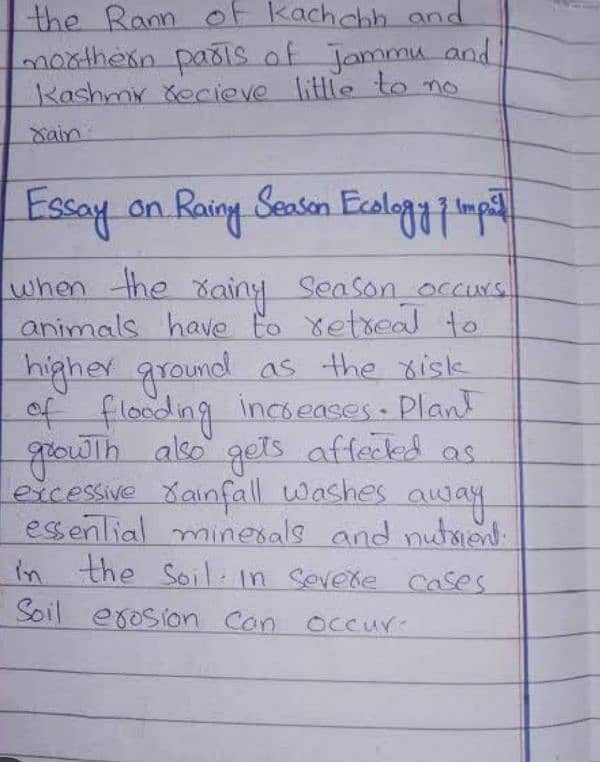 the Rann of Kachchh and
northern parts of Jammu and
Kashmir recieve little to no
rain.
Essay on Rainy Season Ecology & Impact
when the rainy season occurs
animals have to retreat to
higher ground as the risk
of flooding increases. Plant
growth also gets affected as
excessive rainfall washes away
essential minerals and nutrient.
in the soil. in severe cases
Soil erosion can occur.